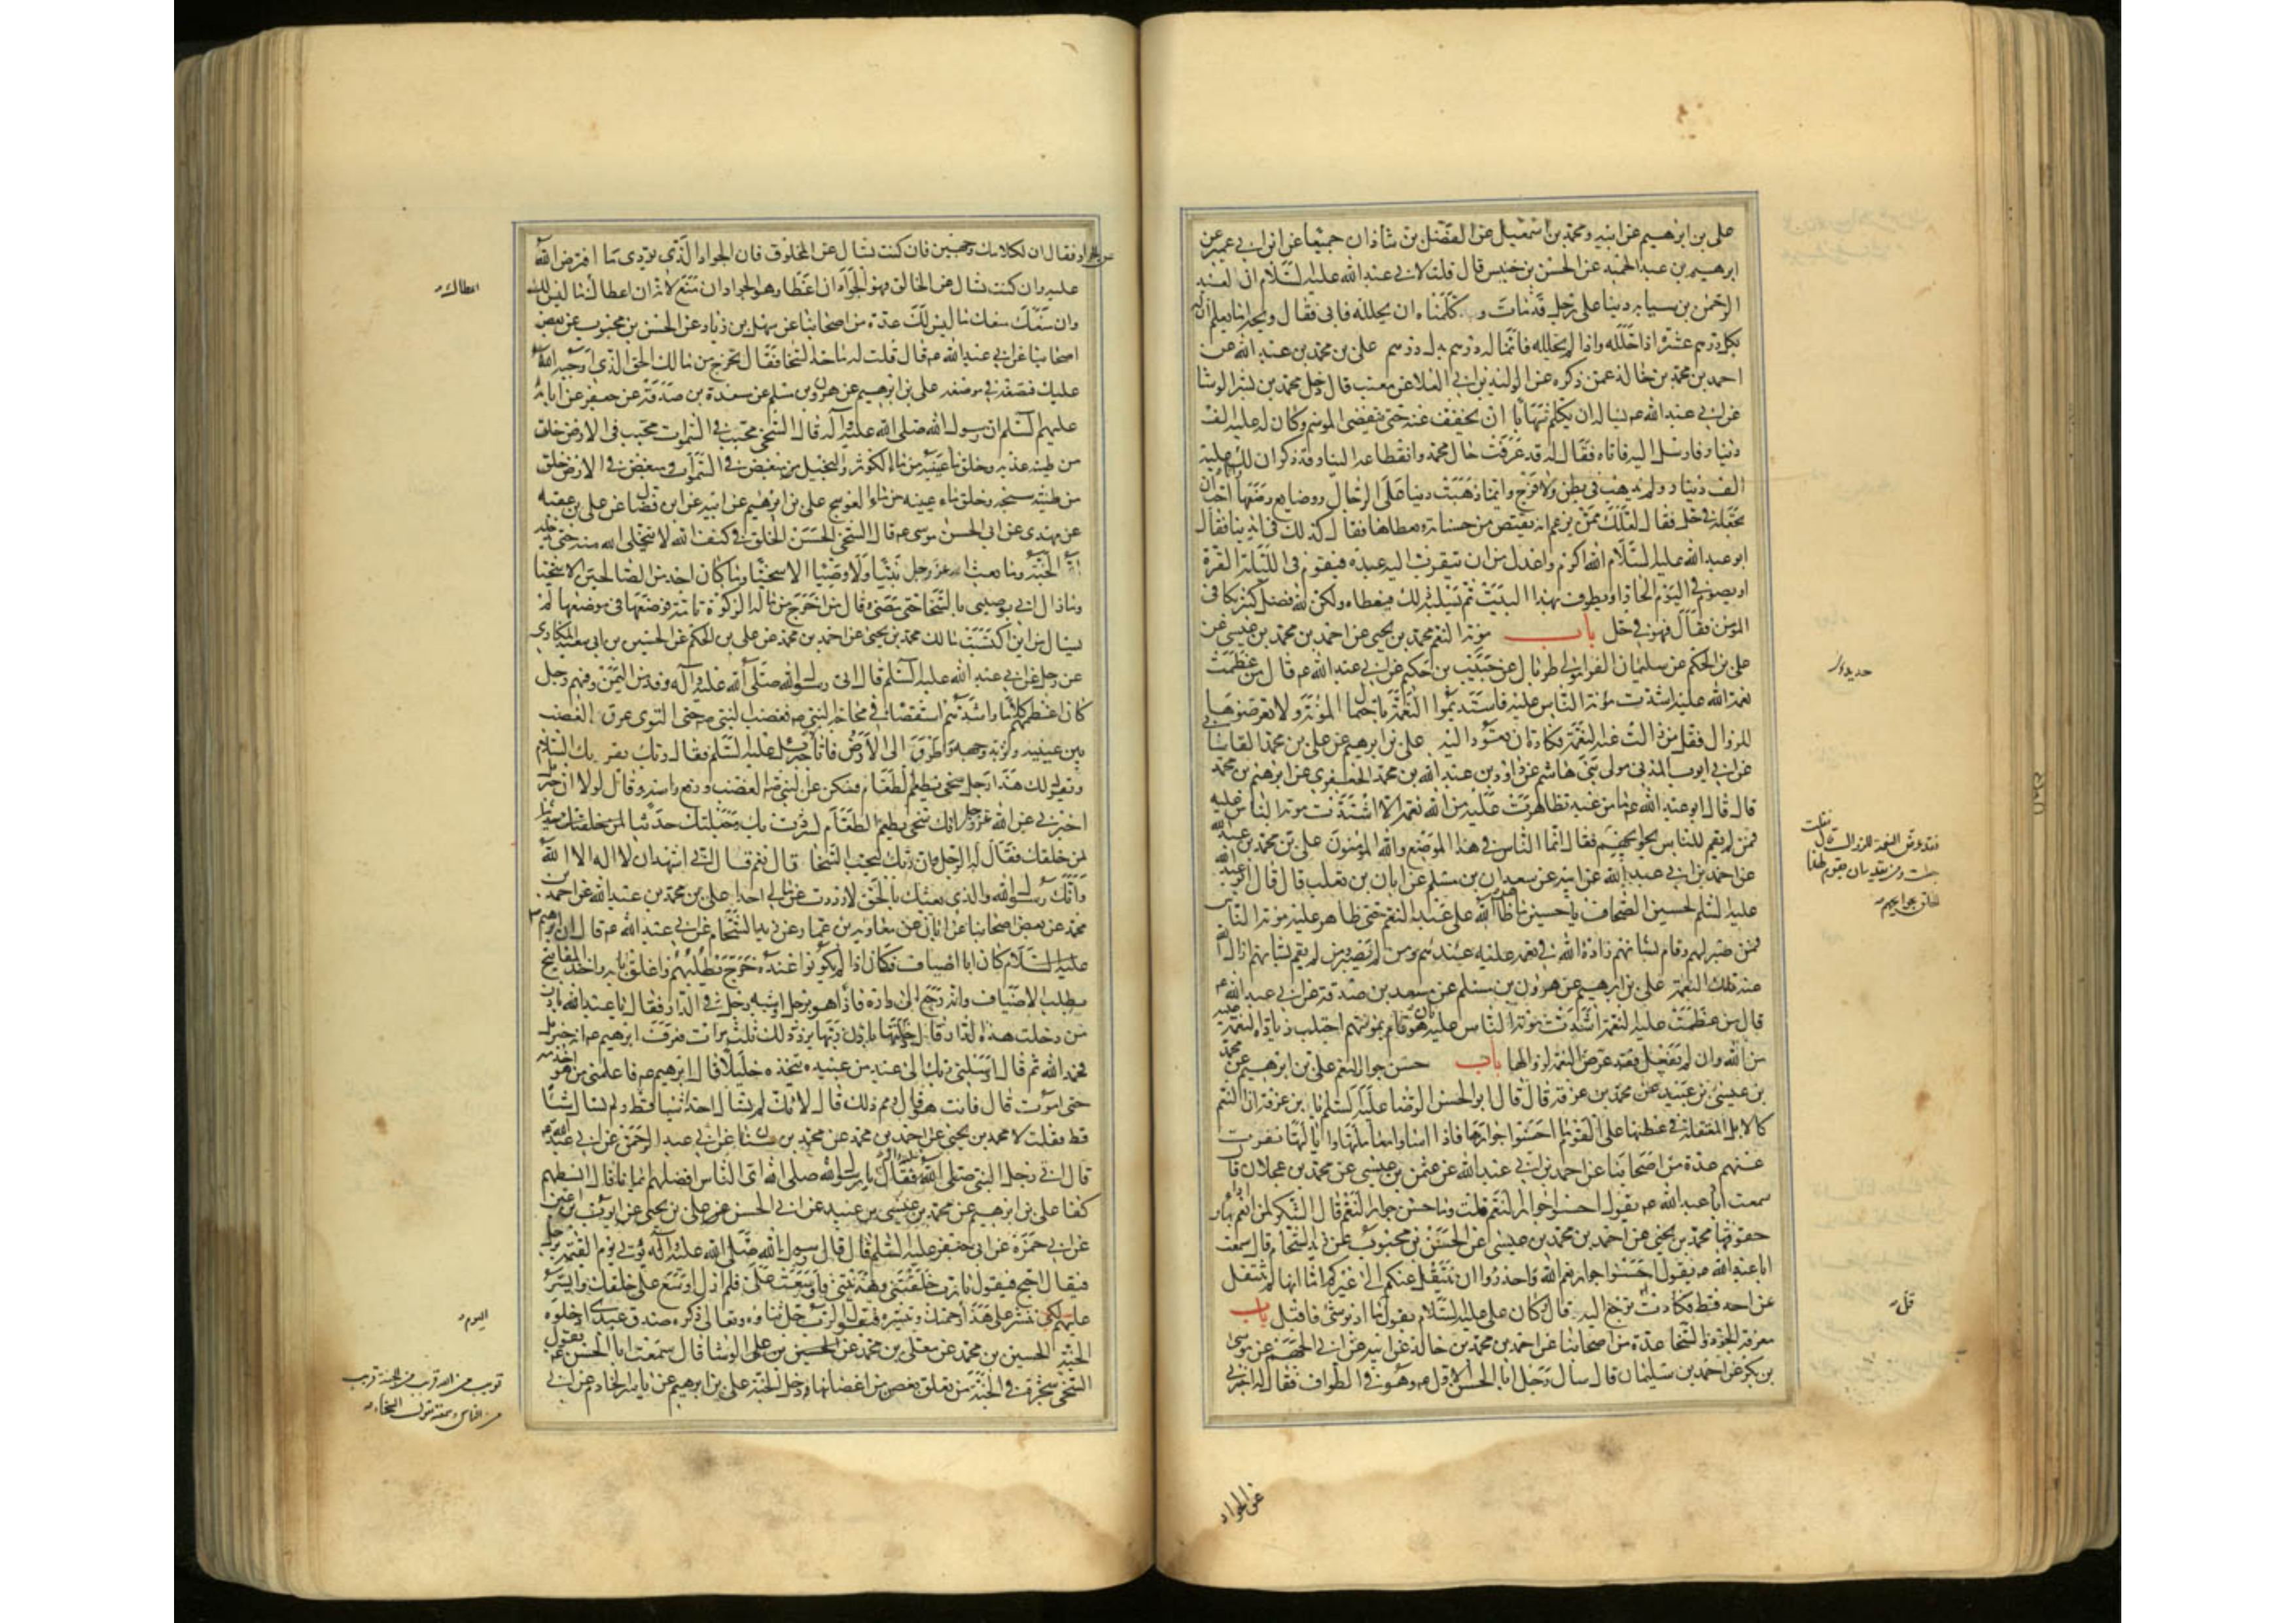 علي بن ابرهيم عن ابيه ومحمد بن اسمعيل عن الفضل بن شاذان جميعا عن ابن ابي عمير عن
ابرهيم بن عبد الحميد عن الحسن بن خنيس قال قلت لابي عبد الله عليه السلام ان لعبد
الرحمن بن سيابه دينا على رجل قد مات و كلمناه ان يحلله فابى فقال ويحه اما يعلم ان له
بكل درهم عشرة اذا حلله واذا لم يحلله فانما له درهم بدل درهم علي بن محمد بن عبد الله عن
احمد بن محمد بن خالد عمن ذكره عن الوليد بن ابي العلا عن معتب قال دخل محمد بن بشر الوشا
على ابي عبد الله ع يساله ان يكلم شهابا ان يخفف عنه حتى ينقضي الموسم وكان له عليه الف
دينار فارسل اليه فاتاه فقال له قد عرفت حال محمد وانقطاعه الينا وقد ذكر ان لك عليه
الف دينار ولم يذهب في بطن ولا فرج وانما ذهبت دينا على الرجال ووضايع وضعها انا احب ان
تجعله في حل فقال لعلك ممن يزعم انه يقتص من حسناته معطاها فقال كذلك في ايدينا فقال
ابو عبد الله عليه السلام الله اكرم واعدل من ان يتقرب اليه عبده فيقوم في الليلة القرة
او يصوم في اليوم الحار او يطوف بهذا البيت ثم يسلبه ذلك فيعطاه ولكن لله فضل كثير يكافي
المؤمن فقال فهو في حل باب مؤنة النعم محمد بن يحيى عن احمد بن محمد بن عيسى عن
علي بن الحكم عن سليمان الفرا مولى طربال عن حكيم عن ابي عبد الله ع قال من عظمت
نعمة الله عليه اشتدت مؤنة الناس عليه فاستديموا النعمة باحتمال المؤنة ولا تعرضوها
للزوال فقل من زالت عنه النعمة فكادت ان تعود اليه علي بن ابرهيم عن علي بن محمد القاساني
عن ابي ايوب المدني مولى بني هاشم عن داود بن عبد الله بن محمد الجعفري عن ابرهيم بن محمد
قال قال ابو عبد الله ع ما من عبد تظاهرت عليه من الله نعمة الا اشتدت مؤنة الناس عليه
فمن لم يقم للناس بحوايجهم فقال انما الناس في هذا الموضع والله المؤمنون علي بن محمد بن عبد الله
عن احمد بن ابي عبد الله عن ابيه عن سعدان بن مسلم عن ابان بن تغلب قال قال ابو عبد الله
عليه السلم لحسين الصحاف يا حسين ما ظاهر الله على عبد النعم حتى ظاهر عليه مؤنة الناس
فمن صبر لهم وقام بشانهم زاده الله في نعمه عليه عندهم ومن لم يصبر لم يقم بشانهم ازال الله
عنه تلك النعمة علي بن ابرهيم عن هرون بن مسلم عن مسعدة بن صدقة عن ابي عبد الله ع
قال من عظمت عليه النعمة اشتدت مؤنة الناس عليه فان هو قام بمؤنتهم اجتلب زيادة النعمة عليه
من الله وان لم يفعل فقد عرض النعمة لزوالها باب حسن جوار النعم علي بن ابرهيم عن محمد
بن عيسى بن عبيد عن محمد بن عرفة قال قال ابو الحسن الرضا عليه السلم يا بن عرفة ان النعم
كالابل المعتقلة في عطنها على القوم ما احسنوا جوارها فاذا اساوا معاملتها وايالتها نفرت
عنهم عدة من اصحابنا عن احمد بن ابي عبد الله عن عثمن بن عيسى عن محمد بن عجلان قال
سمعت ابا عبد الله ع يقول احسنوا جوار النعم قلت وما حسن جوار النعم قال الشكر لمن انعم بها واداء
حقوقها محمد بن يحيى عن احمد بن محمد بن عيسى عن الحسن بن محبوب عن زيد الشحام قال سمعت
ابا عبد الله ع يقول احسنوا جوار نعم الله واحذروا ان تنتقل عنكم الى غيركم اما انها لم تنتقل
عن احد قط فكادت ترجع اليه قال وكان علي عليه السلام يقول ما ادبر شي فاقبل باب
معرفة الجود والسخا عدة من اصحابنا عن احمد بن محمد بن خالد عن ابيه عن ابي الجهم عن موسى
بن بكر عن احمد بن سليمان قال سال رجل ابا الحسن الاول ع وهو في الطواف فقال له اخبرني
عن الجواد
قل
عن الجواد فقال ان لكلامك وجهين فان كنت تسال عن المخلوق فان الجواد الذي يؤدي ما افترض الله
عليه وان كنت تسال عن الخالق فهو الجواد ان اعطا وهو الجواد ان منع لانه ان اعطاك ما ليس لك
وان منعك منعك ما ليس لك عدة من اصحابنا عن سهل بن زياد عن الحسن بن محبوب عن بعض
اصحابنا عن ابي عبد الله ع قال قلت له ما حد السخا فقال تخرج من مالك الحق الذي اوجبه الله
عليك فتضعه في موضعه علي بن ابرهيم عن هرون بن مسلم عن مسعدة بن صدقة عن جعفر عن ابائه
عليهم السلم ان رسول الله صلى الله عليه وآله قال السخي محبب في السموات محبب في الارض خلق
من طينة عذبه وخلق ماء عينيه من ماء الكوثر والبخيل مبغض في السموات ومبغض في الارض خلق
من طينة سبخه وخلق ماء عينيه من ماء العوسج علي بن ابرهيم عن ابيه عن ابن فضال عن علي بن عقبه
عن مهدي عن ابي الحسن موسى ع قال السخي الحسن الخلق في كنف الله لا يتخلى الله منه حتى يدخله
الله الجنة وما بعث الله عز وجل نبيا ولا وصيا الا سخيا وما كان احد من الصالحين الا سخيا
وما زال ابي يوصيني بالسخا حتى مضى وقال من اخرج من ماله الزكوة تامة فوضعها في موضعها لم
يسال من اين اكتسبت مالك محمد بن يحيى عن احمد بن محمد عن علي بن الحكم عن الحسين بن ابي سعيد المكاري
عن رجل عن ابي عبد الله عليه السلم قال اتى رسول الله صلى الله عليه وآله وفد من اليمن وفيهم رجل
كان اعظمهم كلاما واشدهم استقصاء في محاجة النبي ص فغضب النبي ص حتى التوى عرق الغضب
بين عينيه وتربد وجهه واطرق الى الارض فاتاه جبرئيل عليه السلم فقال ربك يقرئك السلام
ويقول لك هذا رجل سخي يطعم الطعام فسكن عن النبي ص الغضب ورفع راسه وقال لولا ان جبرئيل
اخبرني عن الله عز وجل انك سخي تطعم الطعام لشردت بك وجعلتك حديثا لمن خلفك
فقال له الرجل وان ربك ليحب السخا قال نعم قال اني اشهد ان لا اله الا الله
وانك رسول الله والذي بعثك بالحق لا رددت عن مالي احدا علي بن محمد بن عبد الله عن احمد بن
محمد عن بعض اصحابنا عن ابان عن معاوية بن عمار وعن زيد الشحام عن ابي عبد الله ع قال ان ابرهيم
عليه السلام كان ابا اضياف فكان اذا لم يكونوا عنده خرج يطلبهم واغلق بابه واخذ المفاتيح
يطلب الاضياف وانه رجع الى داره فاذا هو برجل او شبه رجل في الدار فقال يا عبد الله باذن
من دخلت هذه الدار قال دخلتها باذن ربها يردد ذلك ثلث مرات فعرف ابرهيم ع انه جبرئيل
فحمد الله ثم قال ارسلني ربك الى عبد من عبيده يتخذه خليلا قال ابرهيم ع فاعلمني من هو اخدمه
حتى اموت قال فانت هو قال ومم ذلك قال لانك لم تسال احدا شيئا قط ولم تسال شيئا
قط فقلت لا محمد بن يحيى عن احمد بن محمد عن محمد بن سنان عن ابي عبد الرحمن عن ابي عبد الله ع
قال اتى رجل النبي صلى الله عليه وآله فقال يا رسول الله صلى الله اي الناس افضلهم ايمانا فقال ابسطهم
كفا علي بن ابرهيم عن محمد بن عيسى بن عبيد عن ابي الحسن عن علي بن يحيى عن ايوب بن اعين
عن ابي حمزة عن ابي جعفر عليه السلم قال قال رسول الله صلى الله عليه وآله يؤتى يوم القيمة برجل
فيقال احتج فيقول يا رب خلقتني وهديتني فاوسعت علي فلم ازل اوسع على خلقك وايسر
عليهم لكي تنشر علي هذا رحمتك وتيسره فيقول الرب جل ثناؤه وتعالى ذكره صدق عبدي ادخلوه
الجنة الحسين بن محمد عن معلى بن محمد عن الحسن بن علي الوشا قال سمعت ابا الحسن ع يقول
السخي شجرة في الجنة من تعلق بغصن من اغصانها دخل الجنة علي بن ابرهيم عن ياسر الخادم عن ابي
اعطاك
اليوم
قريب من الله قريب من الجنة قريب
من الناس وسمعته يقول السخاء